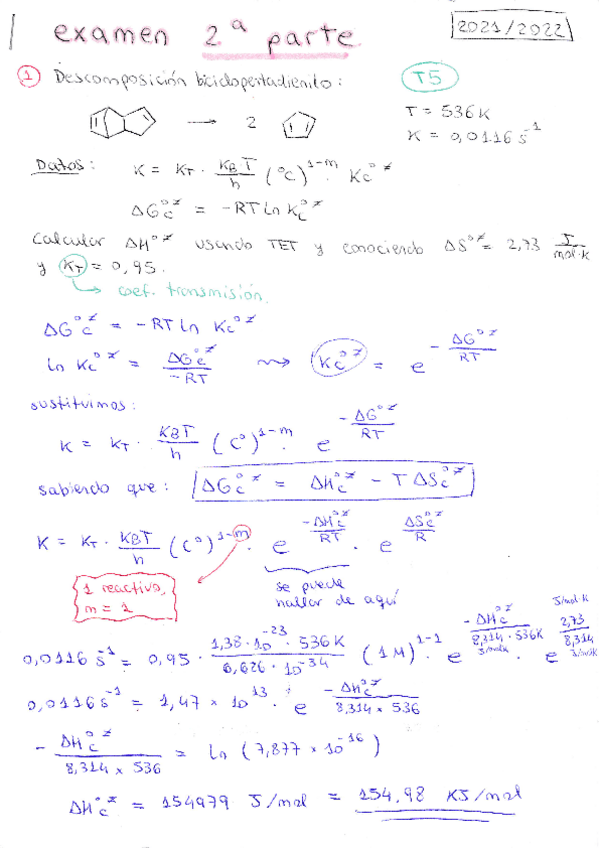 examen 2ª parte
2021/2022
1 Descomposición biciclopentadienilo:
T5
→ 2
T = 536K
K = 0,0116 s⁻¹
Datos: K = K_T · (K_B·T / h) (°C)^(1-m) · K_C^(o≠)
ΔG_C^(o≠) = -RT Ln K_C^(o≠)
Calcular ΔH^(o≠) usando TET y conociendo ΔS^(o≠) = 2,73 J/mol·K
y K_T = 0,95.
coef. transmisión.
ΔG_C^(o≠) = -RT Ln K_C^(o≠)
ln K_C^(o≠) = ΔG_C^(o≠) / -RT ⇝ K_C^(o≠) = e^(-ΔG^(o≠)/RT)
sustituimos:
K = K_T · (K_BT / h) (C°)^(1-m) · e^(-ΔG^(o≠)/RT)
sabiendo que: ΔG_C^(o≠) = ΔH_C^(o≠) - TΔS_C^(o≠)
K = K_T · (K_BT / h) (C°)^(1-m) · e^(-ΔH_C^(o≠)/RT) · e^(ΔS_C^(o≠)/R)
1 reactivo,
m = 1
se puede
hallar de aquí
0,0116 s⁻¹ = 0,95 · (1,38·10⁻²³ · 536K / 6,626·10⁻³⁴) (1M)^(1-1) · e^(-ΔH_C^(o≠) / 8,314 J/molK · 536K) · e^(2,73 J/mol·K / 8,314 J/molK)
0,0116 s⁻¹ = 1,47 × 10¹³ · e^(-ΔH_C^(o≠) / 8,314 × 536)
- ΔH_C^(o≠) / 8,314 × 536 = ln (7,877 × 10⁻¹⁶)
ΔH_C^(o≠) = 154979 J/mol = 154,98 KJ/mol